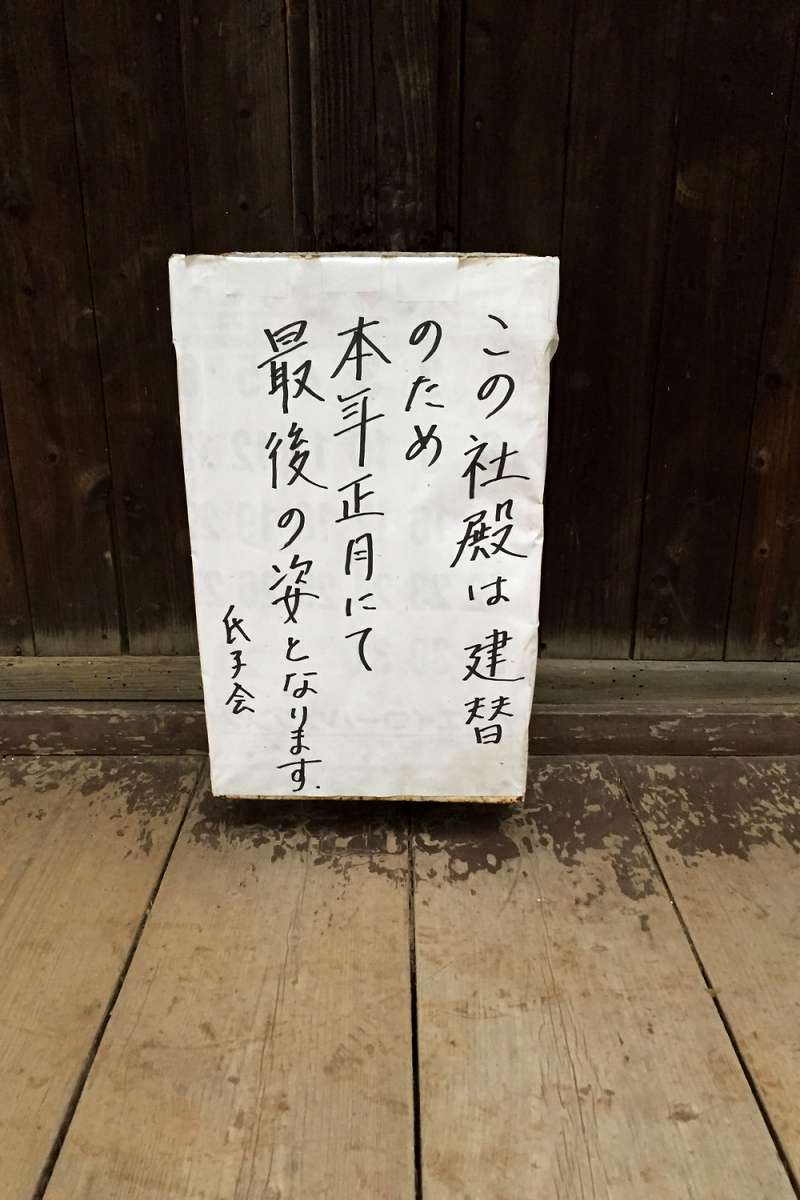 この社殿は建替
のため
本年正月にて
最後の姿となります.
氏子会